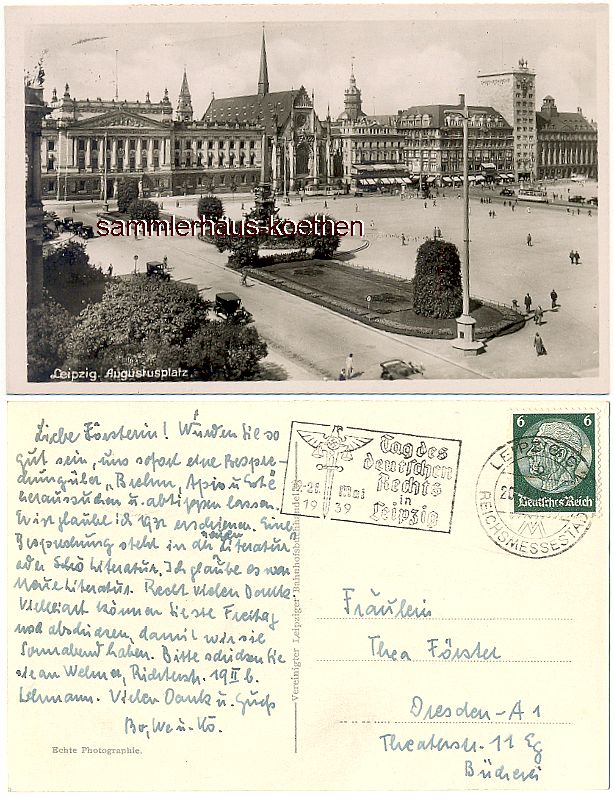 sammlerhaus-koethen
Leipzig. Augustusplatz.
Liebe Försterin! Würden Sie so
gut sein, uns sofort eine Bespre-
chung über "Brehm, Apis u. Esté"
heraussuchen u. abtippen lassen.
Er ist glaube ich 1931 erschienen. Eine
Besprechung steht in der neuen Literatur
oder Schö Literatur. Ich glaube es war
Neue Literatur. Recht vielen Dank
Vielleicht können Sie sie Freitag
noch abschicken, damit wir sie
Sonnabend haben. Bitte schicken Sie
sie an Richterstr. 19 II b.
Lehmann. Vielen Dank u. Gruß
u. Co.
Echte Photographie.
Vereinigter Leipziger Bahnhofsbuchhandel
Tag des
deutschen
Rechts
in
Leipzig
Mai
1939
LEIPZIG
20
REICHSMESSESTADT
6 6
Deutsches Reich
Fräulein
Thea Förster
Dresden-A 1
Theaterstr. 11 Eg
Bücherei